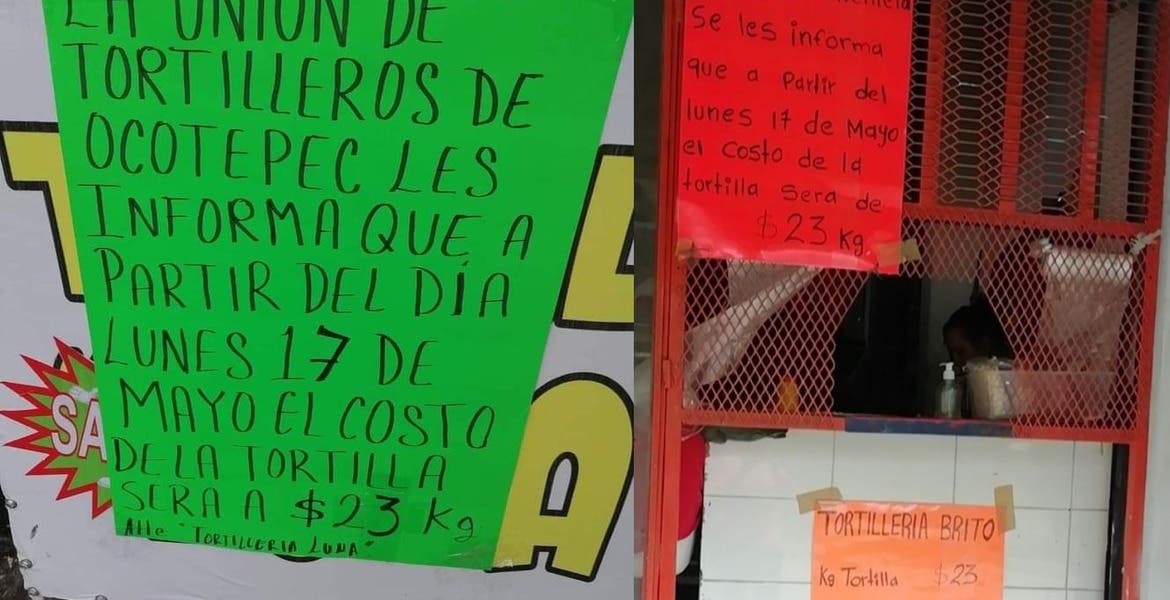 LA UNION DE
TORTILLEROS DE
OCOTEPEC LES
INFORMA QUE A
PARTIR DEL DÍA
LUNES 17 DE
MAYO EL COSTO
DE LA TORTILLA
SERA A $23 Kg
Atte "TORTILLERIA LUNA"
SA
Se les informa
que a Partir del
lunes 17 de Mayo
el Costo de la
tortilla Sera de
$23 Kg.
TORTILLERIA BRITO
Kg Tortilla $23